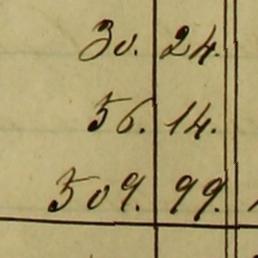 30. 24.
56. 14.
509. 99.